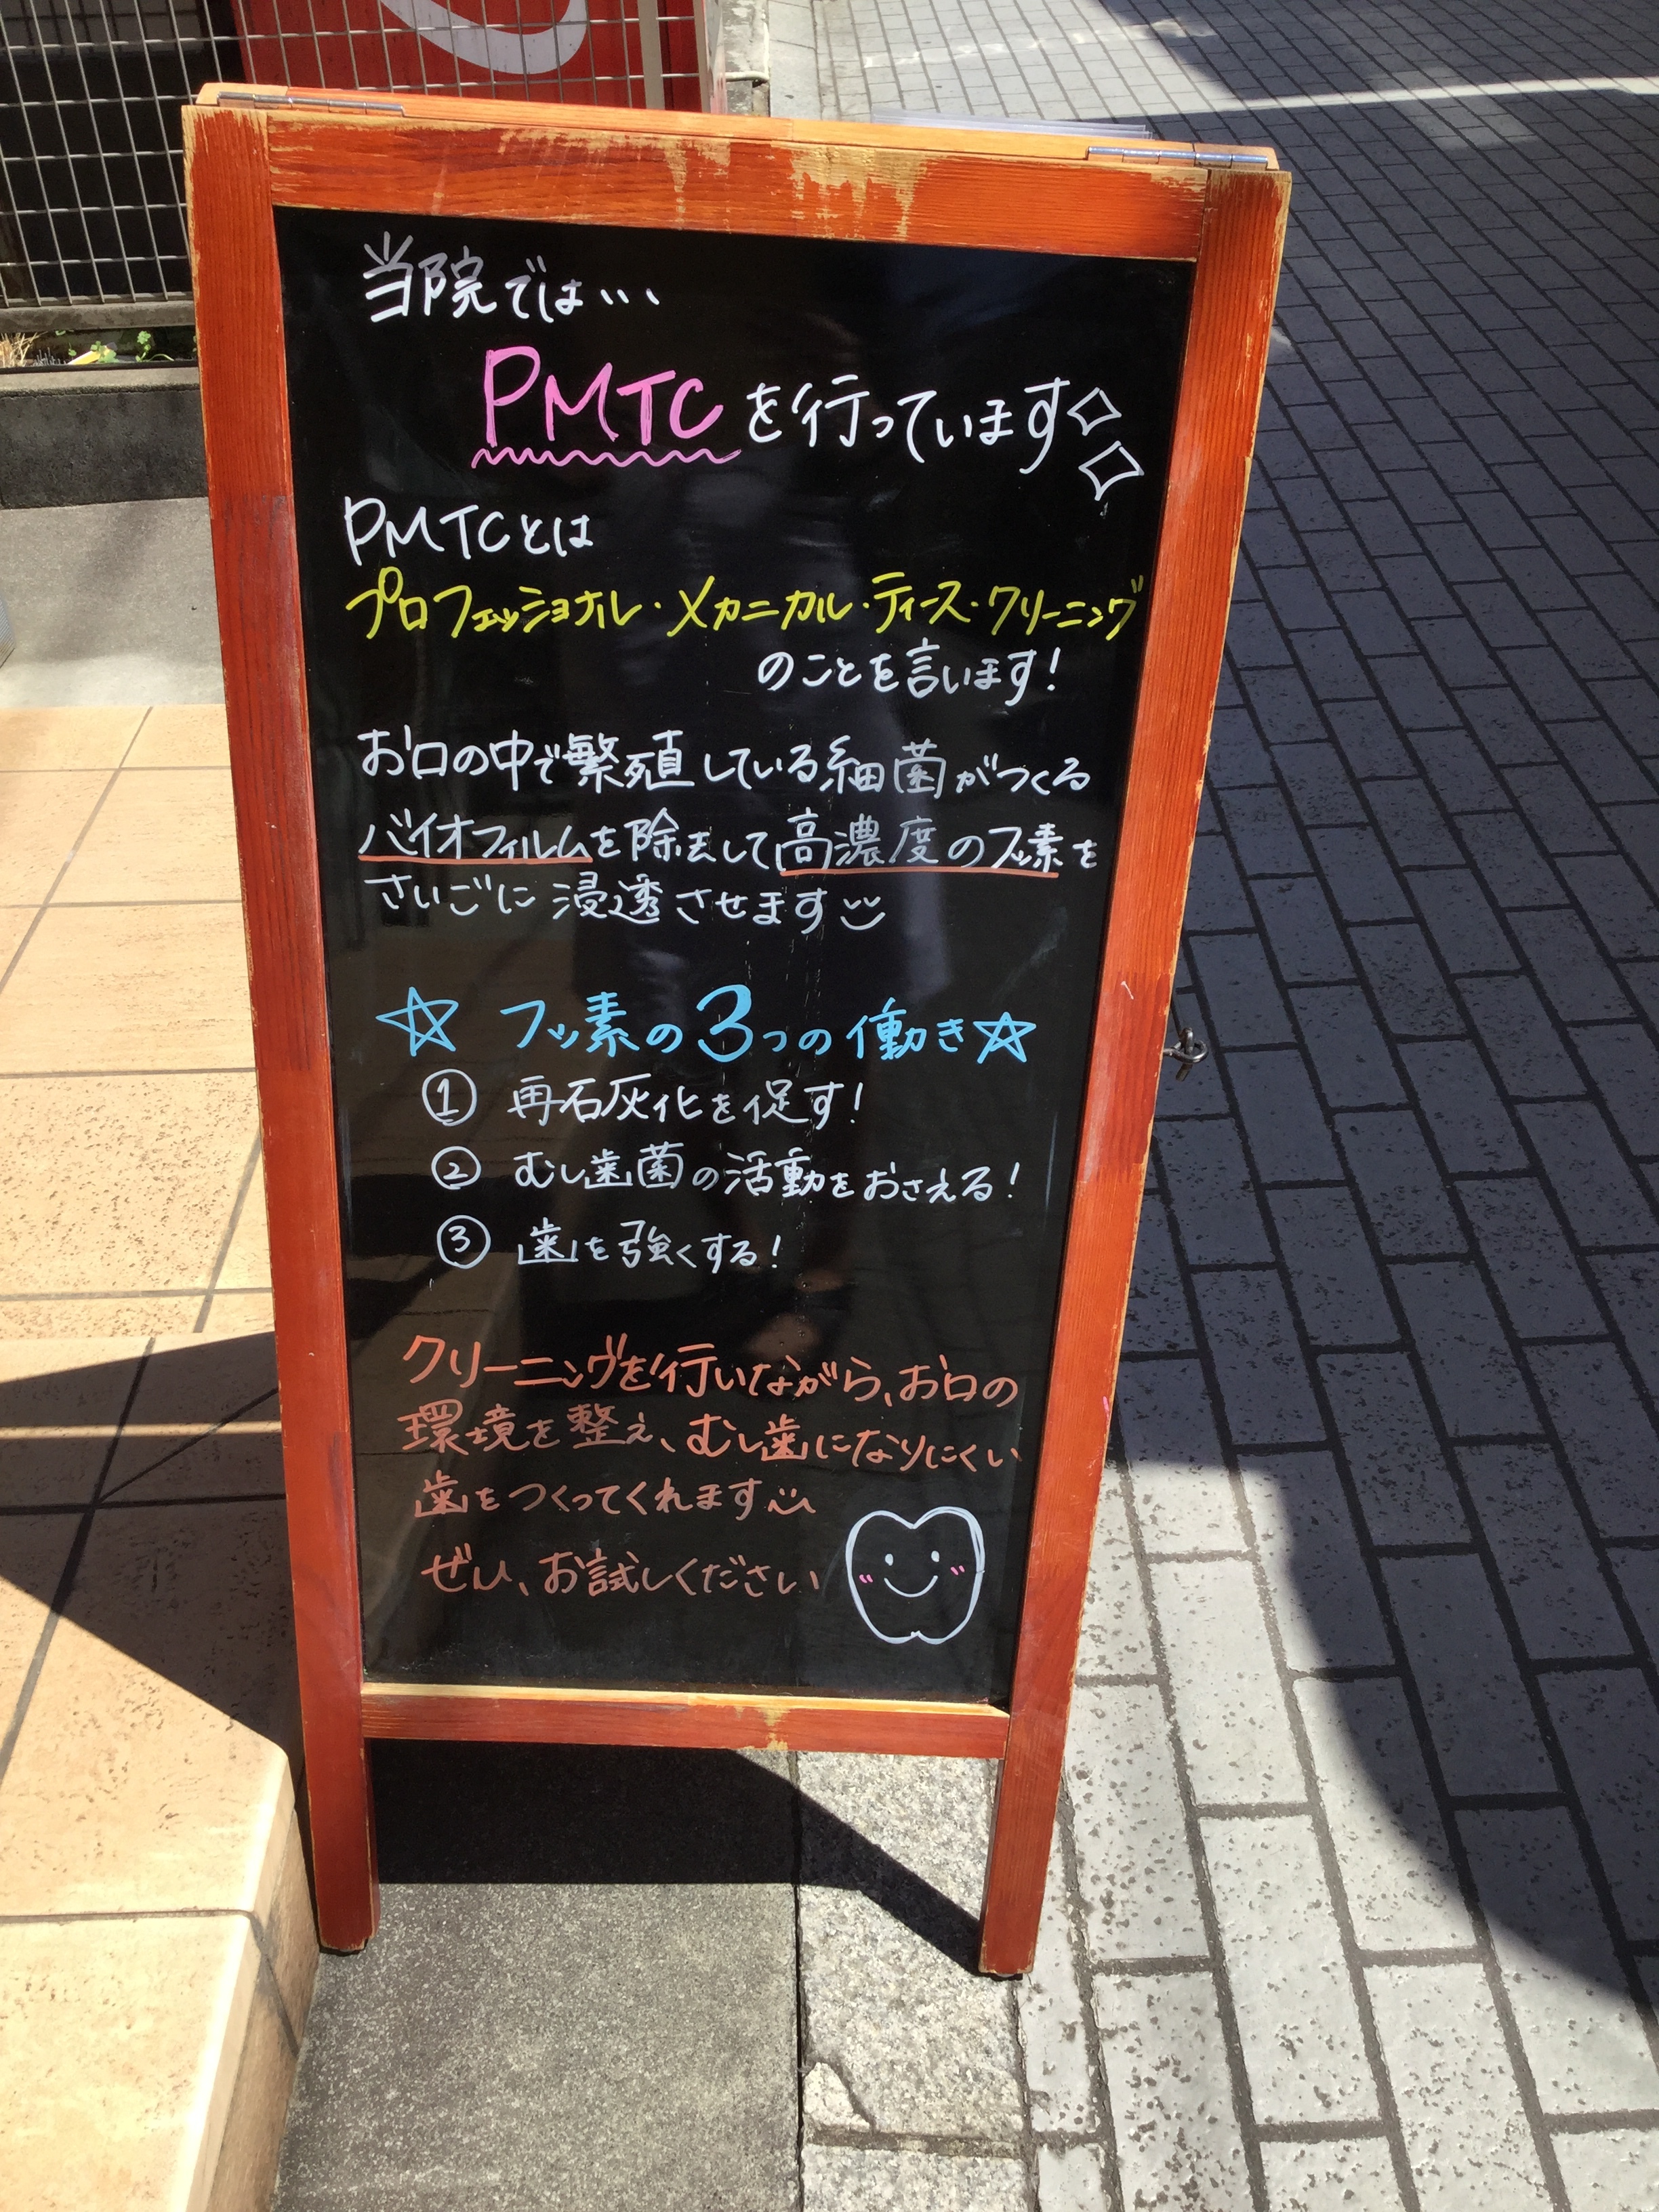 当院では…
PMTCを行っています
PMTCとは
プロフェッショナル・メカニカル・ティース・クリーニング
のことを言います!
お口の中で繁殖している細菌がつくる
バイオフィルムを除去して高濃度のフッ素を
さいごに浸透させます
☆ フッ素の3つの働き☆
① 再石灰化を促す!
② むし歯菌の活動をおさえる!
③ 歯を強くする!
クリーニングを行いながら、お口の
環境を整え、むし歯になりにくい
歯をつくってくれます
ぜひ、お試しください